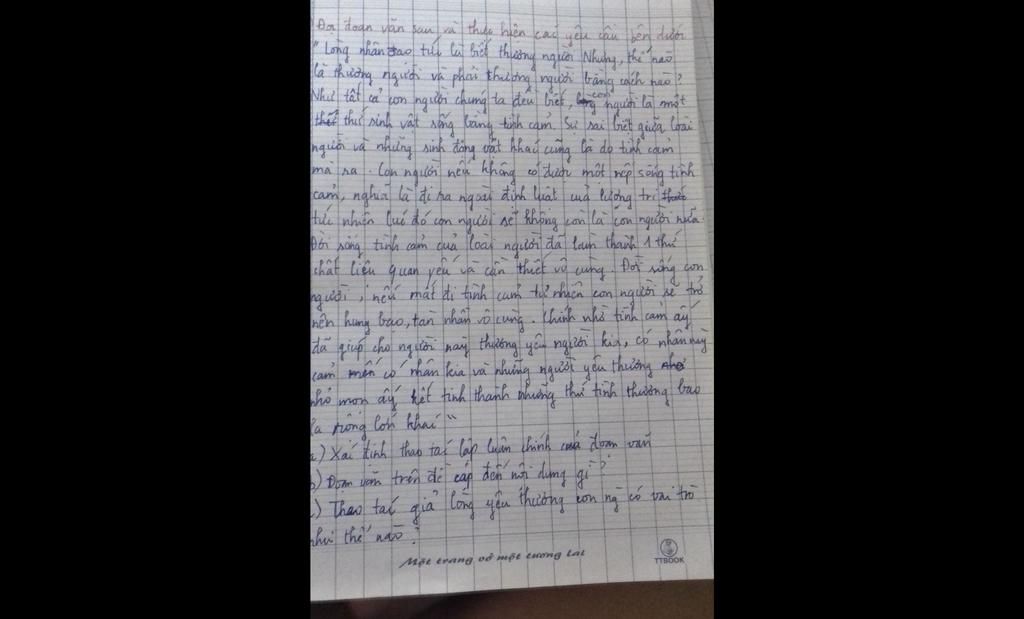 Đọc đoạn văn sau và thực hiện các yêu cầu bên dưới
"Lòng nhân đạo tức là biết thương người. Nhưng, thế nào
là thương người và phải thương người bằng cách nào?
Như tất cả con người chúng ta đều biết, con người là một
thứ sinh vật sống bằng tình cảm. Sự sai biệt giữa loài
người và những sinh động vật khác cũng là do tình cảm
mà ra. Con người nếu không có được một nếp sống tình
cảm, nghĩa là đi ra ngoài định luật của lương tri
tức nhiên lúc đó con người sẽ không còn là con người nữa.
Đời sống tình cảm của loài người đã làm thành 1 thứ
chất liệu quan yếu và cần thiết vô cùng. Đời sống con
người, nếu mất đi tình cảm tự nhiên con người sẽ trở
nên hung bạo, tàn nhẫn vô cùng. Chính nhờ tình cảm ấy
đã giúp cho người này thương yêu người kia, có nhân này
cảm có nhân kia và những người yêu thương
nhỏ mọn ấy kết tinh thành những thứ tình thương bao
la rộng lớn khác"
a) Xác định thao tác lập luận chính của đoạn văn
b) Đoạn văn trên đề cập đến nội dung gì?
c) Theo tác giả lòng yêu thương con ng có vai trò
như thế nào?
Một trang vở một tương lai
TTBOOK